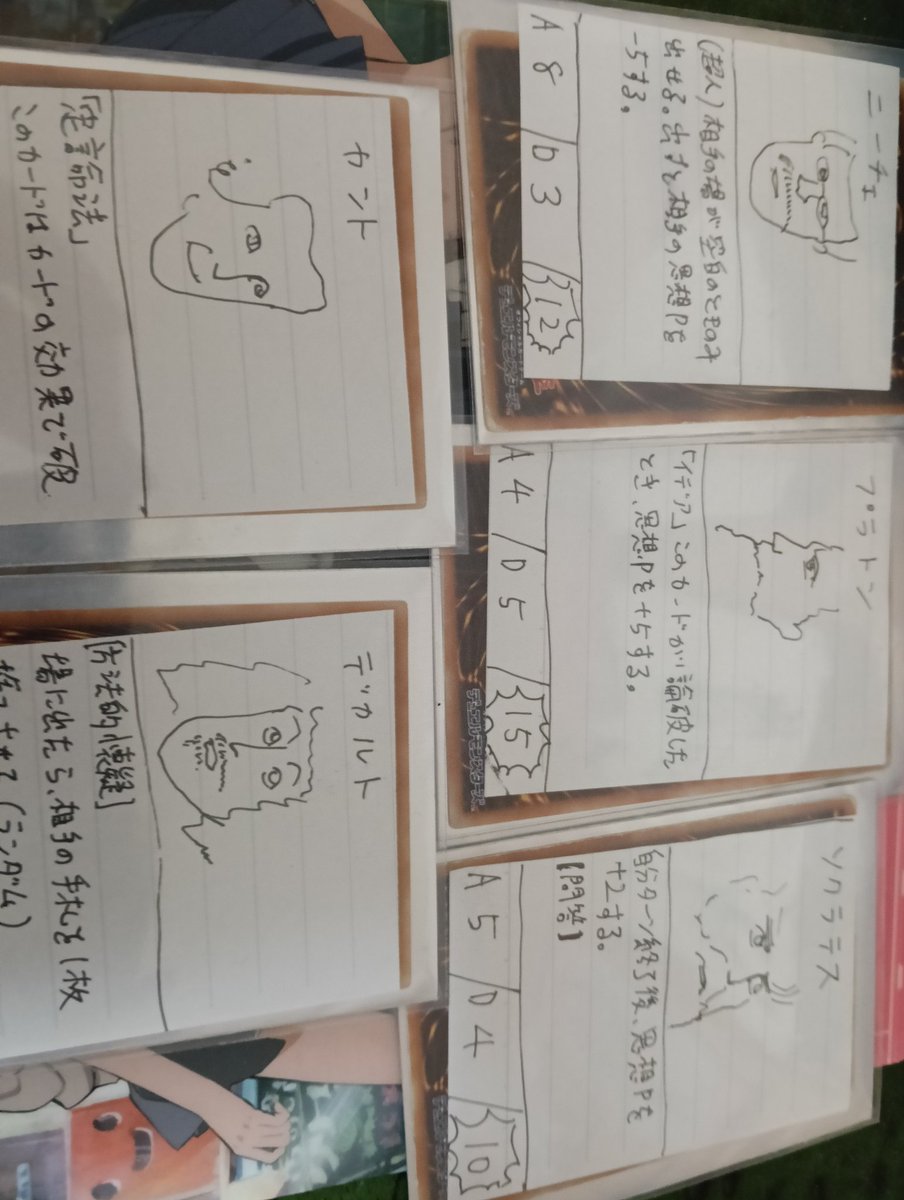 ニーチェ
(超人)相手の場が空白のときのみ
出せる。出すと相手の思想Pを
-5する。
A 8 / D 3 / 12
プラトン
「イデア」このカードが論破した
とき、思想Pを+5する。
A 4 / D 5 / 15
ソクラテス
自分ターン終了後、思想Pを
+2する。
【問答】
A 5 / D 4 / 10
カント
「定言命法」
このカードはカードの効果で破
デカルト
[方法的懐疑]
場に出たら、相手の手札を1枚
捨てさせる(ランダム)
デュエルモンスターズ